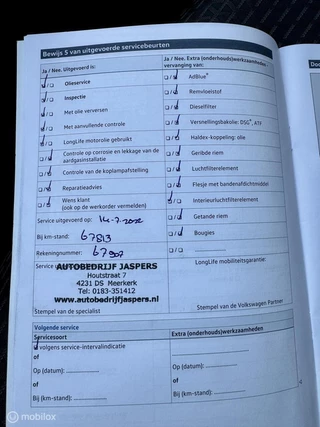 Bewijs 5 van uitgevoerde servicebeurten
Ja / Nee. Uitgevoerd is:
Olieservice
Inspectie
Met olie verversen
Met aanvullende controle
LongLife motorolie gebruikt
Controle op corrosie en lekkage van de aardgasinstallatie
Controle van de koplampafstelling
Reparatieadvies
Wens klant
(ook op de werkorder vermelden)
Service uitgevoerd op: 14-7-2022
Bij km-stand: 67813
Rekeningnummer: 67907
AUTOBEDRIJF JASPERS
Houtstraat 7
4231 DS Meerkerk
Tel: 0183-351412
www.autobedrijfjaspers.nl
Stempel van de specialist
Ja / Nee. Extra (onderhouds)werkzaamheden
vervanging van:
AdBlue®
Remvloeistof
Dieselfilter
Versnellingsbakolie: DSG®, ATF
Haldex-koppeling: olie
Geribde riem
Luchtfilterelement
Flesje met bandenafdichtmiddel
Interieurluchtfilterelement
Getande riem
Bougies
LongLife mobiliteitsgarantie:
Stempel van de Volkswagen Partner
Volgende service
Servicesoort
volgens service-intervalindicatie
of
Op (datum):
of
Bij (km-stand):
Extra (onderhouds)werkzaamheden
Op (datum):
of
Bij (km-stand):
© mobilox